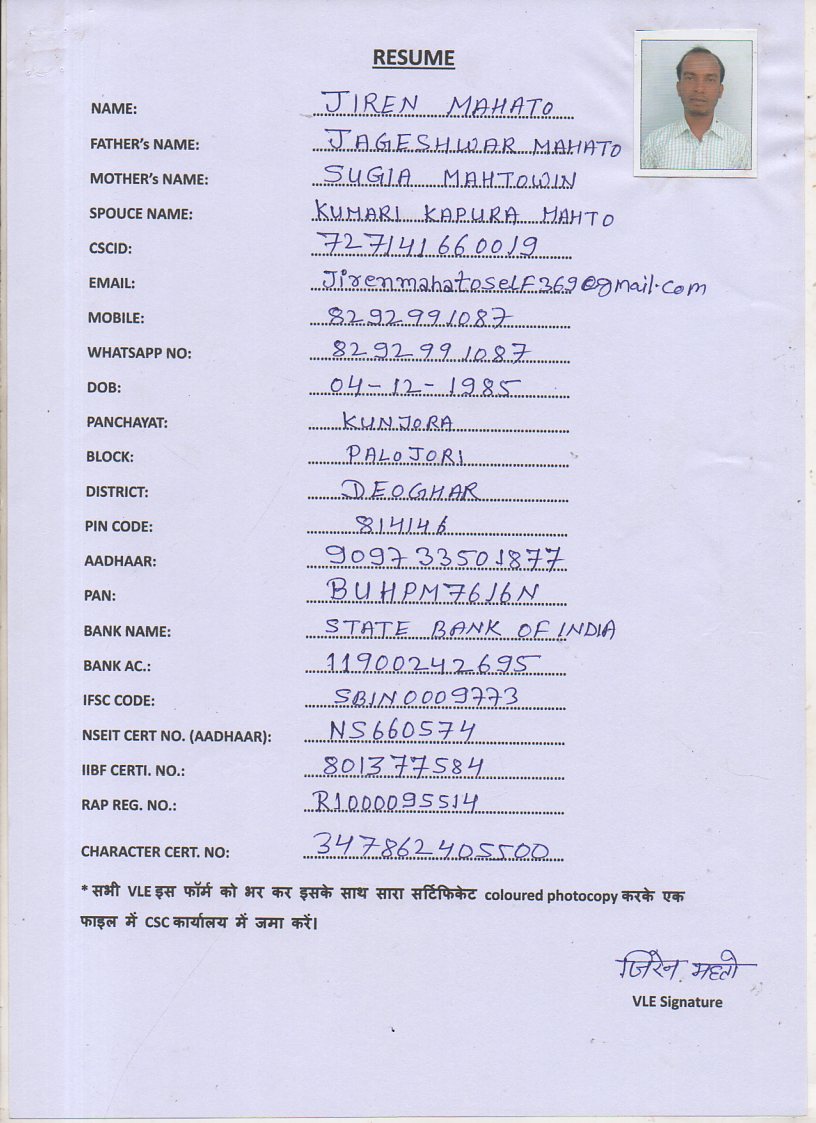 RESUME
NAME: JIREN MAHATO
FATHER's NAME: JAGESHWAR MAHATO
MOTHER's NAME: SUGIA MAHTOWIN
SPOUCE NAME: KUMARI KAPURA MAHTO
CSCID: 727141660019
EMAIL: Jirenmahatoself369@gmail.com
MOBILE: 8292991087
WHATSAPP NO: 8292991087
DOB: 04-12-1985
PANCHAYAT: KUNJORA
BLOCK: PALOJORI
DISTRICT: DEOGHAR
PIN CODE: 814146
AADHAAR: 909733501877
PAN: BUHPM7616N
BANK NAME: STATE BANK OF INDIA
BANK AC.: 11900242695
IFSC CODE: SBIN0009773
NSEIT CERT NO. (AADHAAR): NS660574
IIBF CERTI. NO.: 801377584
RAP REG. NO.: R1000095514
CHARACTER CERT. NO: 347862405500
* सभी VLE इस फॉर्म को भर कर इसके साथ सारा सर्टिफिकेट coloured photocopy करके एक
फाइल में CSC कार्यालय में जमा करें।
जिरेन महतो
VLE Signature